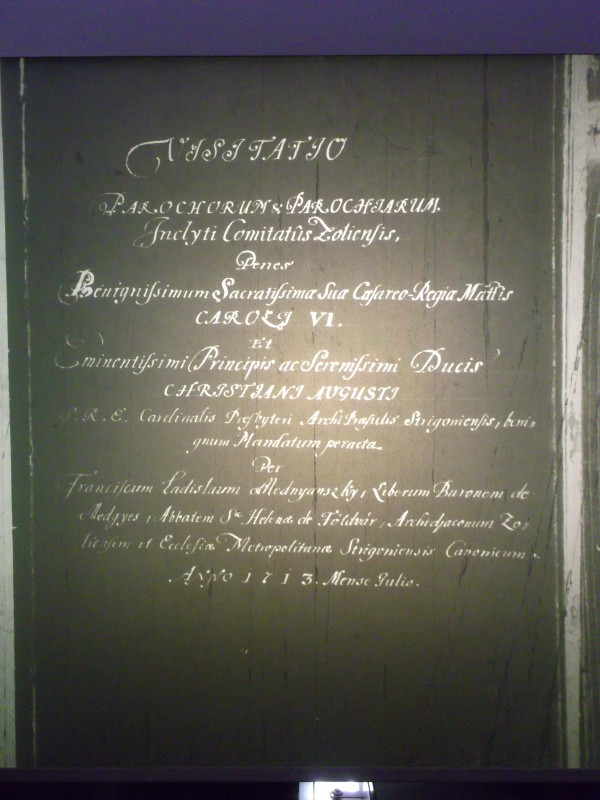 VISITATIO
PAROCHORUM & PAROCHIARUM
Inclyti Comitatûs Zoliensis,
Penes
Benignissimum Sacratissimæ Suæ Cæsareo-Regiæ Mattis
CAROLI VI.
Et
Eminentissimi Principis ac Serenissimi Ducis
CHRISTIANI AUGUSTI
S. R. E. Cardinalis Presbyteri ArchiPræsulis Strigoniensis, beni-
gnum Mandatum peracta
Per
Franciscum Ladislaum Mednyanszky, Liberum Baronem de
Medgyes, Abbatem Sæ Helenæ de Földvár, Archidiaconum Zo-
liensem et Ecclesiæ Metropolitanæ Strigoniensis Canonicum.
ANNO 1713. Mense Julio.